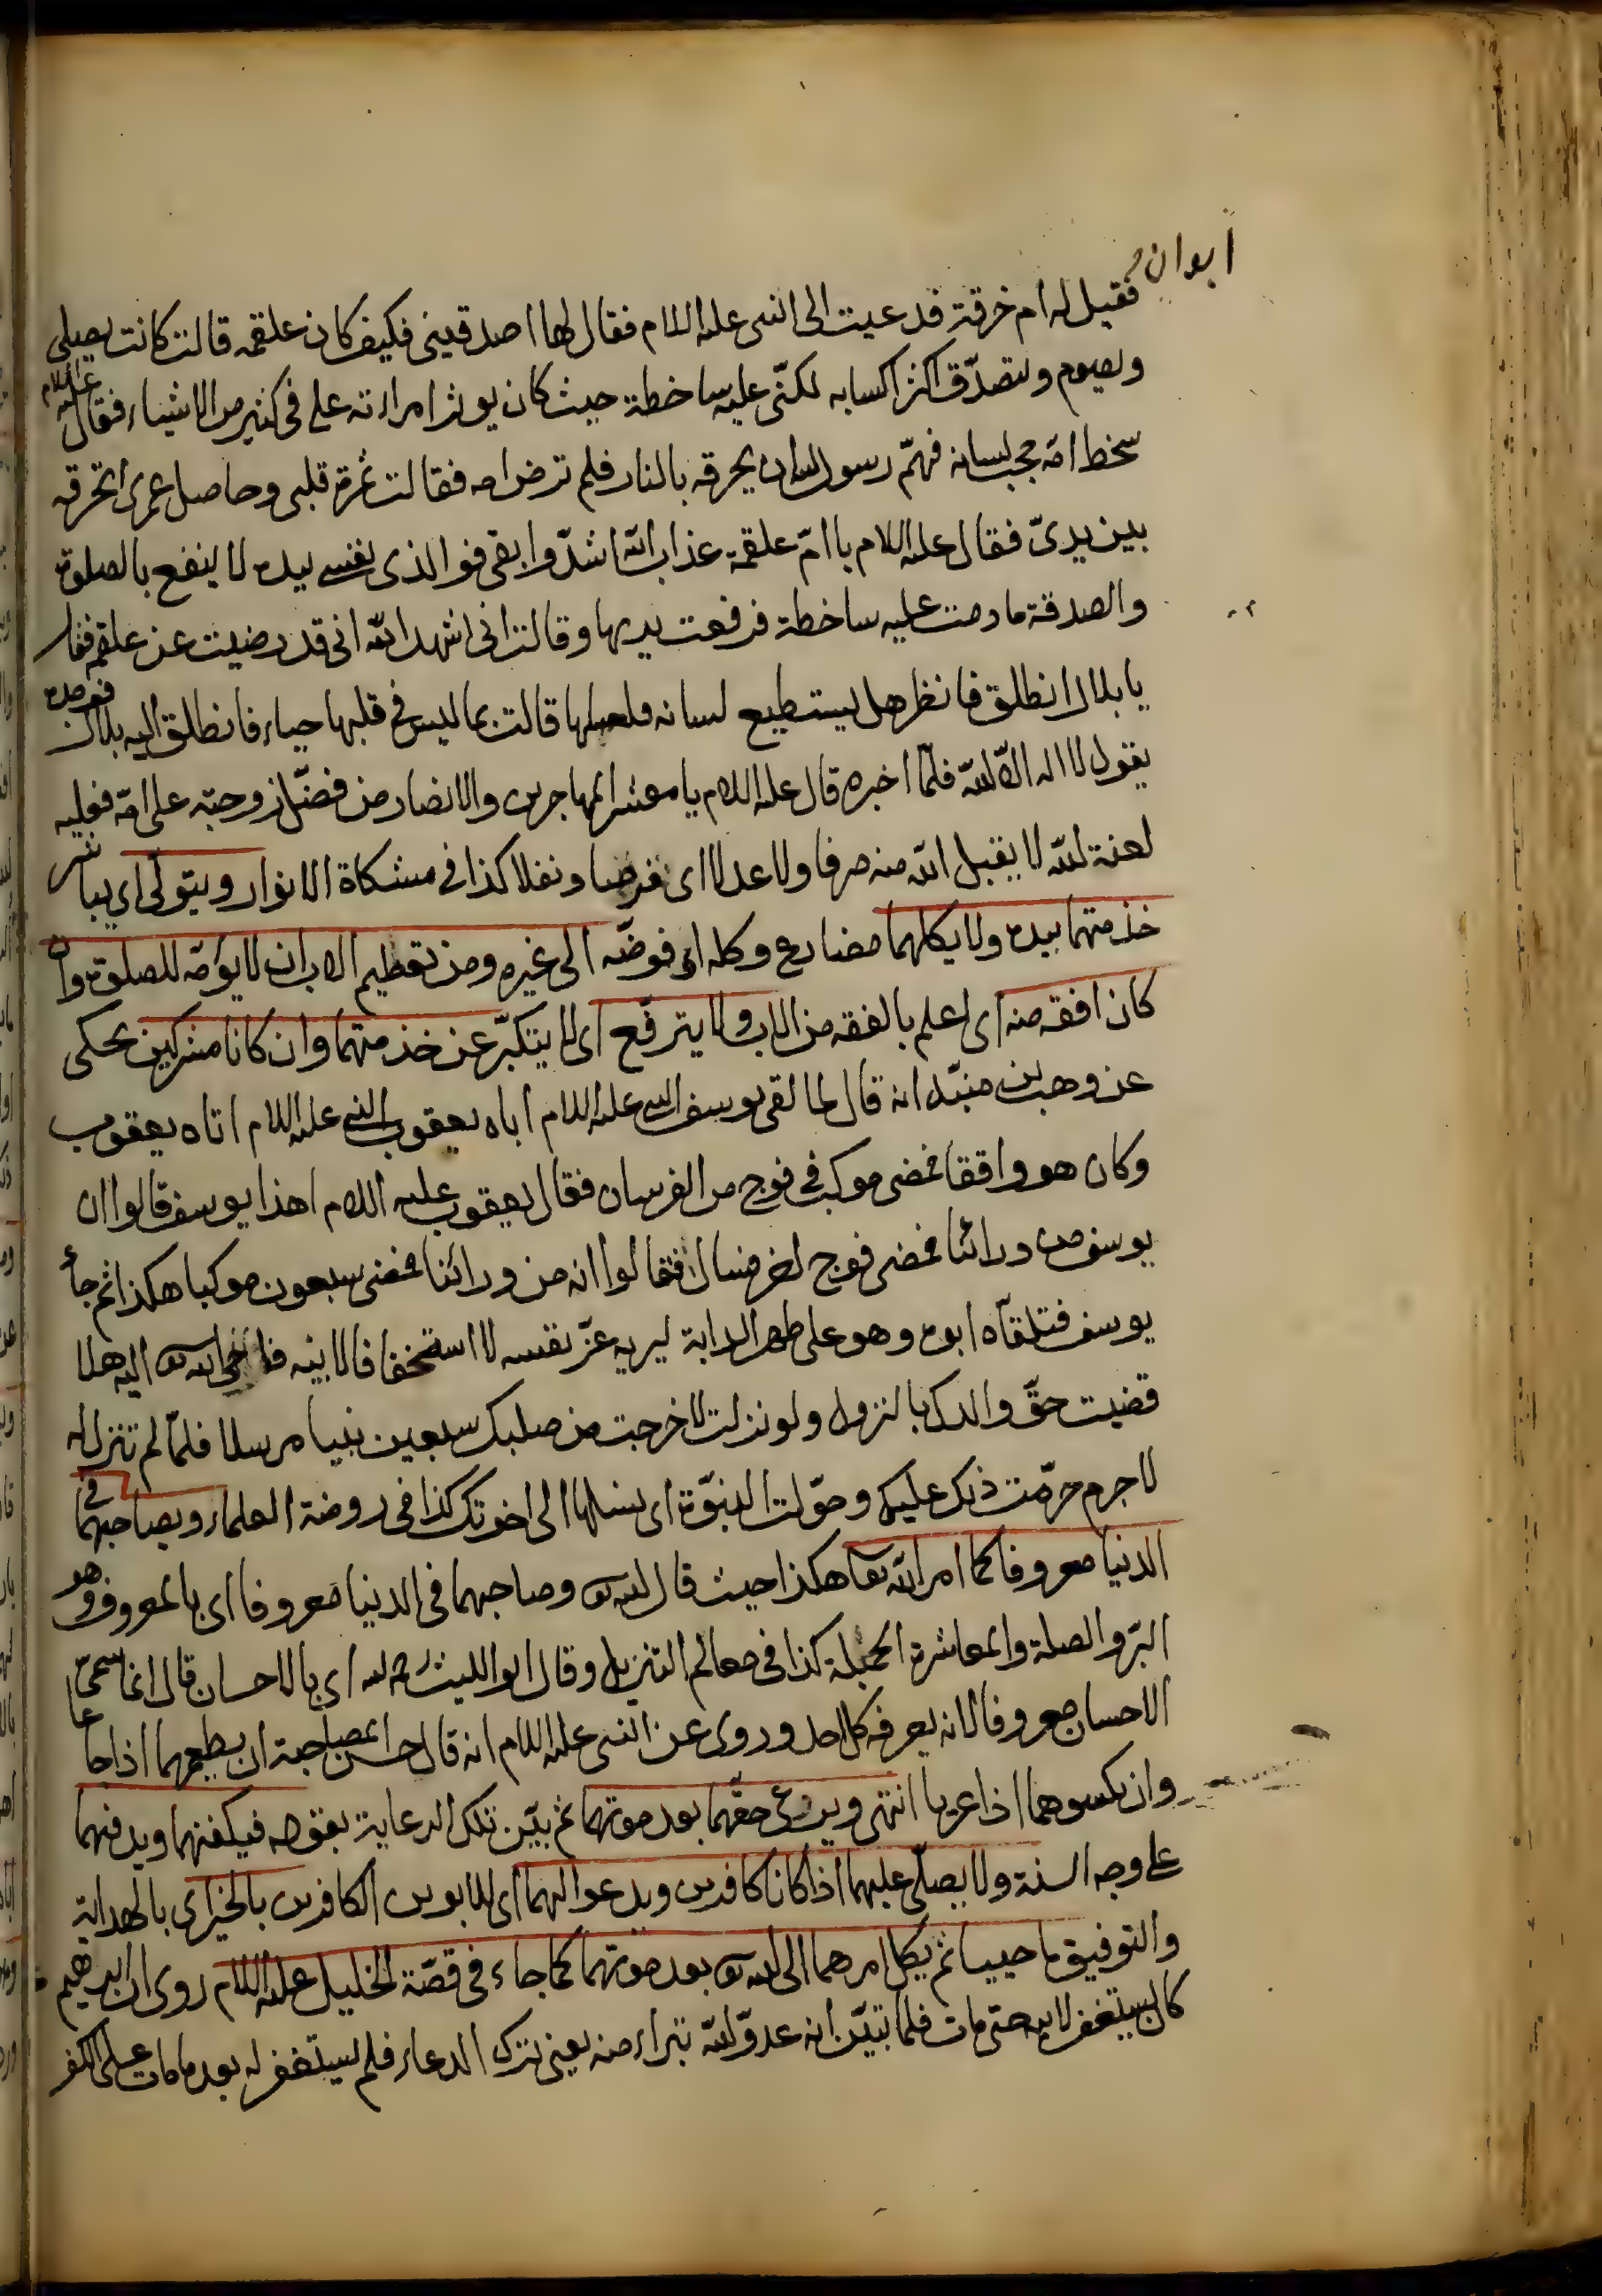 ابوان
فقيل له ام خرقة فدعيت الى النبى عليه السلام فقال لها اصدقينى فكيف كان علقمه قالت كانت يصلى
ويصوم ويتصدّق اكثر اكسابه لكنّى عليه ساخطة حيث كان يوثر امراءته على فى كثير من الاشياء فقال عليه السلام
سخط امّه حجب لسانه فهمّ رسول الله ان يحرقه بالنار فلم ترض امه فقالت ثمرة قلبى وحاصل عمرى اتحرقه
بين يدىّ فقال عليه السلام يا امّ علقمة عذاب الله اشدّ وابقى فو الذى نفسى بيده لا ينفع بالصلوة
والصدقة ما دمت عليه ساخطة فرفعت يديها وقالت انى اشهد الله انى قد رضيت عن علقمه فقال
يا بلال انطلق فانظر هل يستطيع لسانه قالت بما ليس فى قلبها حياء فانطلق اليه بلال فوجده
يقول لا اله الا الله فلمّا اخبره قال عليه السلام يا معشر المهاجرين والانصار من فضّل زوجته على امّه فعليه
لعنة الله لا يقبل الله منه صرفا ولا عدلا اى فرضا ونفلا كذا فى مشكاة الانوار ويتولّى اى يباشر
خذمتهما بيده ولا يكلهما مضارع وكله اى فوضّه الى غيره ومن تعظيم الاب ان لا يؤمّه للصلوة وان
كان افقه منه اى اعلم بالفقه من الاب ولا يترفّع اى لا يتكبّر عن خذمتهما وان كانا مشركين يحكى
عن وهب بن منبّه انه قال لما لقى يوسف النبى عليه السلام اباه يعقوب النبى عليه السلام اتاه يعقوب
وكان هو واقفا فمضى موكب فى فوج من الفرسان فقال يعقوب عليه السلام اهذا يوسف قالوا ان
يوسف من ورائنا فمضى فوج اخر فسال فقالوا انه من ورائنا فمضى سبعون موكبا هكذا ثم جاء
يوسف فتلقّاه ابوه وهو على ظهر الدابة ليريه عزّ نفسه لا استخفافا لابيه فاوحى الله تع اليه هلا
قضيت حقّ والدك بالنزول ولو نزلت لاخرجت من صلبك سبعين نبيا مرسلا فلمّا لم تنزل له
لا جرم حرّمت ذلك عليك وحوّلت النبوّة اى بنسلها الى اخوتك كذا فى روضة العلماء ويصاحبهما فى
الدنيا معروفا كما امر الله تعا هكذا حيث قال الله تع وصاحبهما فى الدنيا معروفا اى بالمعروف وهو
البرّ والصلة والمعاشرة الجميلة كذا فى معالم التنزيل وقال ابو الليث رحمه الله اى بالاحسان قال انما سمّى
الاحسان معروفا لانه يعرفه كل احد وروى عن النبى عليه السلام انه قال حسن المصاحبة ان يطعمهما اذا جاعا
وان يكسوهما اذا عريا انتهى ويرعى حقّهما بعد موتهما ثم بيّن تلك الرعاية بقوله فيكفنهما ويدفنهما
على وجه السنة ولا يصلّى عليهما اذا كانا كافرين ويدعو لهما اى للابوين الكافرين بالخير اى بالهداية
والتوفيق ما حييا ثم يكل امرهما الى الله تع بعد موتهما كما جاء فى قصّة الخليل عليه السلام روى ان ابرهيم
كان يستغفر لابيه حتى مات فلما تبيّن انه عدوّ لله تبراء منه يعنى ترك الدعاء فلم يستغفر له بعد ما مات على الكفر